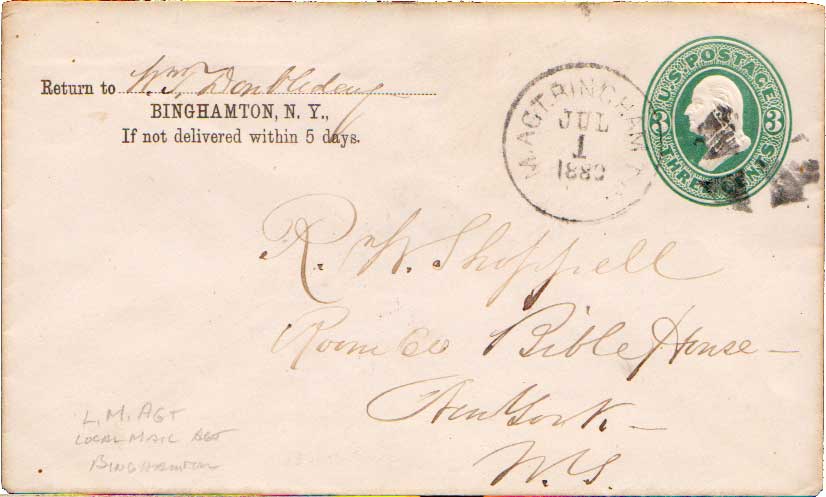 Return to Wm. S. Doubleday
BINGHAMTON, N. Y.,
If not delivered within 5 days.
M. AGT. BINGHAM
JUL
1
U.S. POSTAGE
3 3
THREE CENTS
R. W. Shoppell
Room Bible House —
New York. —
L. M. AGT
LOCAL MAIL AGT
BINGHAMTON